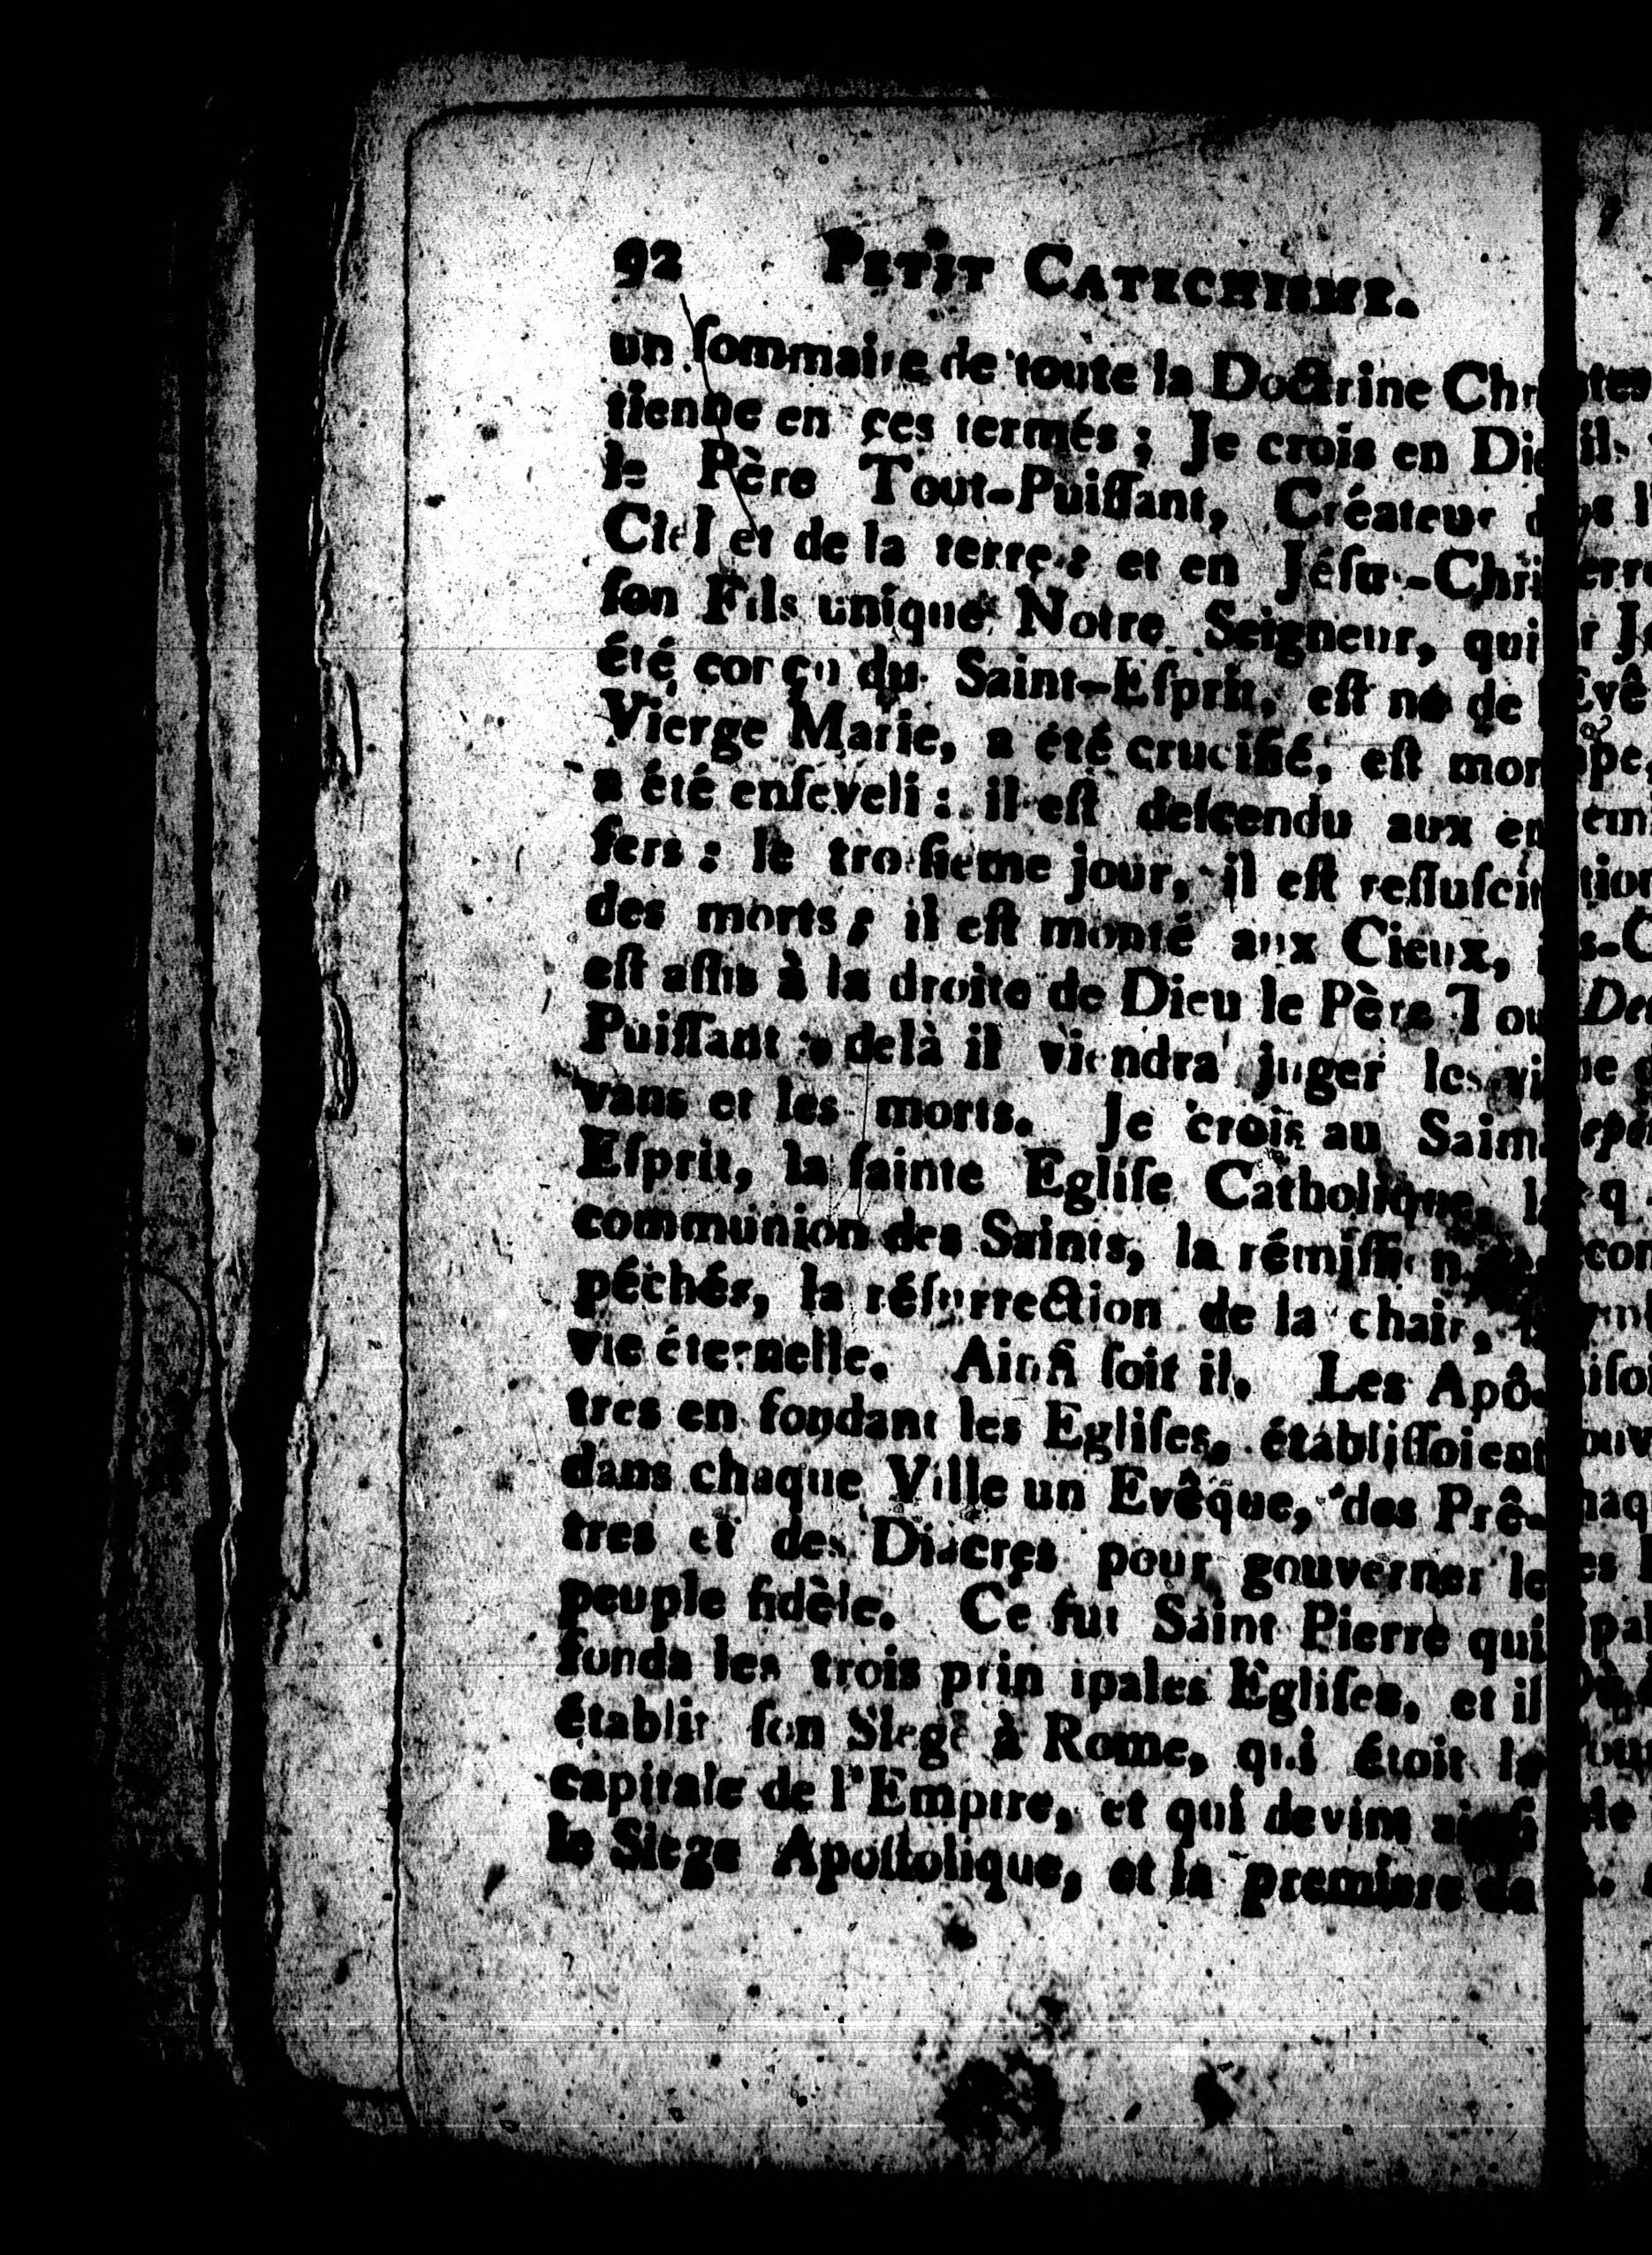 92 PETIT CATECHISME.
un ſommaire de toute la Doctrine Chr
tienne en ces termés ; Je crois en Di
le Père Tout-Puiſſant, Créateur d
Ciel et de la terre : et en Jéſus-Chri
ſon Fils unique Notre Seigneur, qui
été conçu du Saint-Eſprit, eſt né de
Vierge Marie, a été crucifié, eſt mor
a été enſeveli : il eſt deſcendu aux en
fers : le troiſieme jour, il eſt reſſuſcit
des morts ; il eſt monté aux Cieux,
eſt aſſis à la droite de Dieu le Père Tou
Puiſſant : delà il viendra juger les vi
vans et les morts. Je crois au Saint
Eſprit, la ſainte Egliſe Catholique, la
communion des Saints, la rémiſſion
péchés, la réſurrection de la chair, la
vie éternelle. Ainſi ſoit il. Les Apô-
tres en fondant les Egliſes, établiſſoient
dans chaque Ville un Evêque, des Prê-
tres et des Diacres pour gouverner le
peuple fidèle. Ce fut Saint Pierre qui
fonda les trois principales Egliſes, et il
établit ſon Siege à Rome, qui étoit la
capitale de l'Empire, et qui devint ainſi
le Siege Apoſtolique, et la premiere de